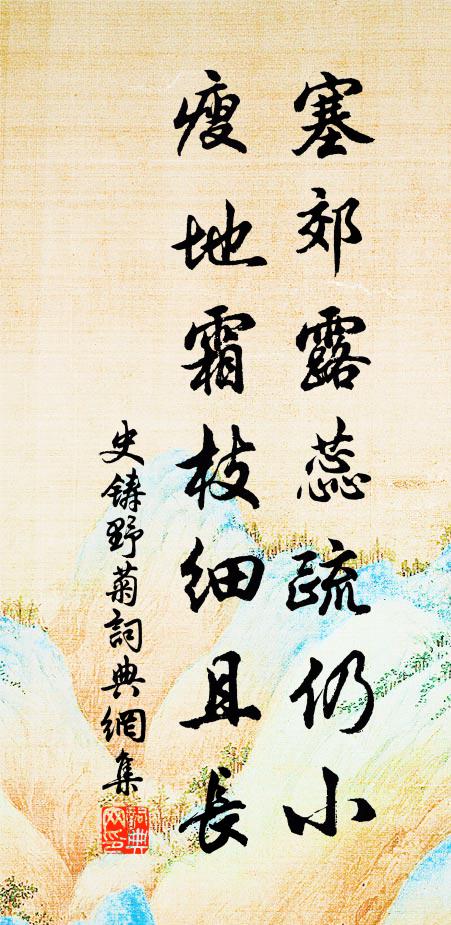 塞郊露蕊疏仍小
瘦地霜枝细且長
史鑄野菊詞典網集
詞典网印